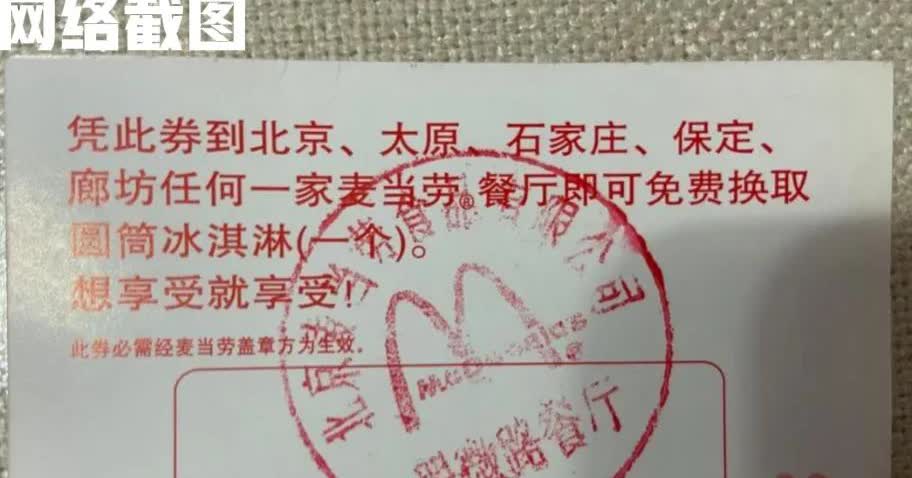 网络截图
凭此券到北京、太原、石家庄、保定、
廊坊任何一家麦当劳®餐厅即可免费换取
圆筒冰淇淋(一个)。
想享受就享受!
此券必需经麦当劳盖章方为生效。
北京麦当劳食品有限公司
McDonald's
路餐厅